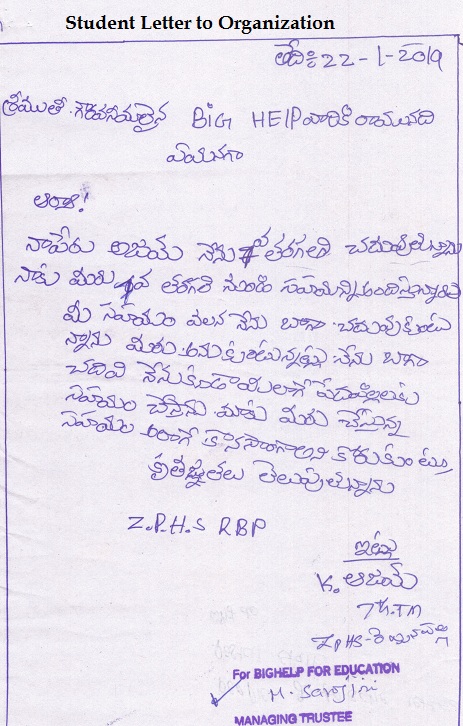 Student Letter to Organization
తేది: 22-1-2019
శ్రీముతో గౌరవనీయులైన BiG HELP వారికి రాయునది
ఏమనగా
అంకుల్!
నాపేరు అజయ్ నేను 7వ తరగతి చదువుతున్నాను
నాకు మీరు 6వ తరగతి నుండి సహాయాన్ని అందిస్తున్నారు
మీ సహాయం వలన నేను బాగా చదువుకుంటు
న్నాను మీరు అనుకుంటున్నట్లు నేను బాగా
చదివి నేనుకూడా మీలాగే పేదపిల్లలకు
సహాయం చేస్తాను మాకు మీరు చేస్తున్న
సహాయం అలాగే కొనసాగాలని కోరుకుంటూ
కృతజ్ఞతలు తెలుపుతున్నాను
Z.P.H.S RBP
ఇట్లు
K. అజయ్
7th TM
ZPHS-
For BIGHELP FOR EDUCATION
M. Sarojini
MANAGING TRUSTEE